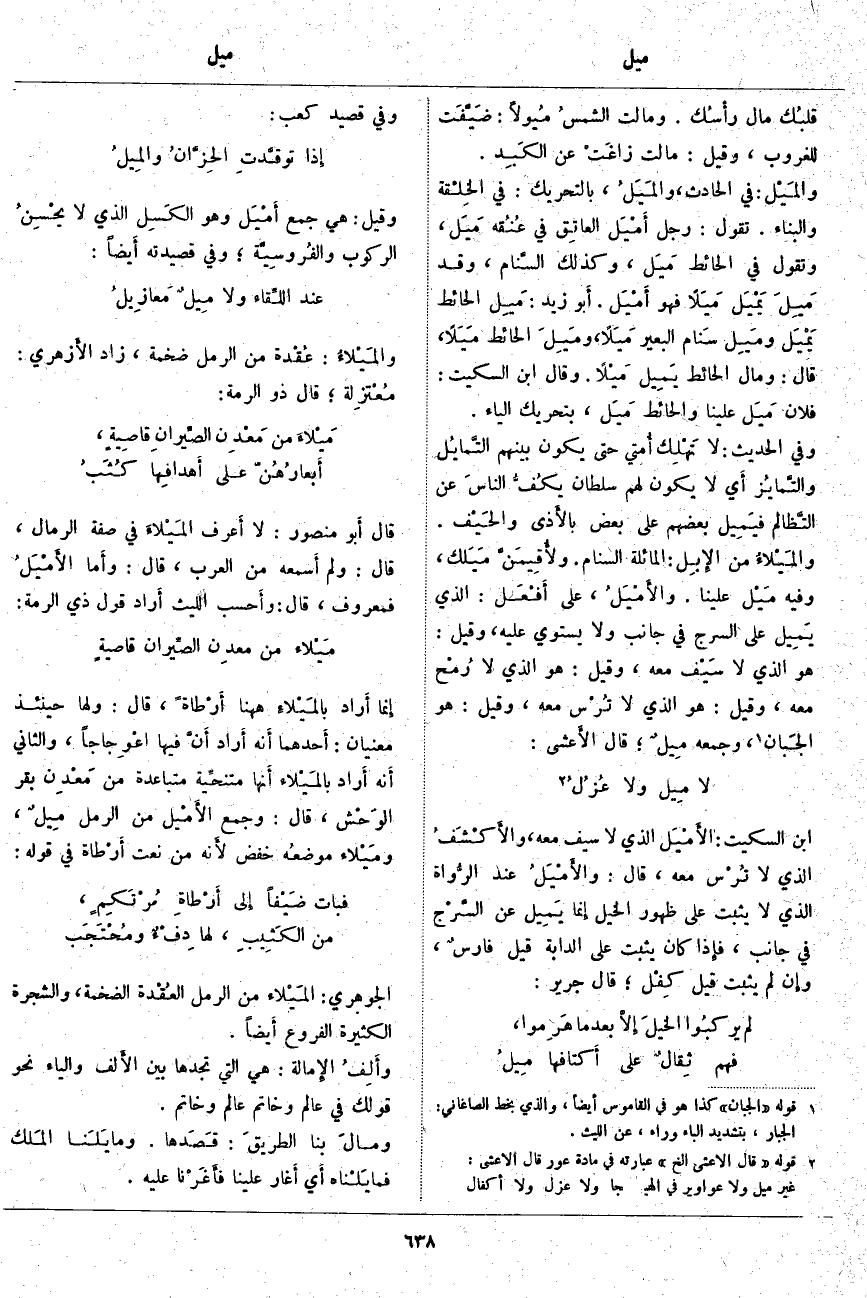 ميل
ميل
قلبُك مال رأسُك . ومالت الشمسُ مُيولاً : ضَيَّفَت
للغروب ، وقيل : مالت زاغَتْ عن الكَبِد .
والمَيْل:في الحادث،والمَيَلُ ، بالتحريك : في الخِلْقة
والبناء . تقول : رجل أَمْيَل العاتِق في عُنُقه مَيَل،
وتقول في الحائط مَيَل ، وكذلك السَّنام ، وقد
مَيِلَ يَمْيَل مَيَلًا فهو أَمْيَل . أَبو زيد : مَيِل الحائط
يَمْيَل ومَيِل سَنام البعير مَيَلًا،ومَيِلَ الحائط مَيَلًا،
قال : ومال الحائط يَمِيل مَيْلًا . وقال ابن السكيت:
فلان مَيَل علينا والحائط مَيَل ، بتحريك الياء .
وفي الحديث:لا تَهْلِك أُمتي حتى يكون بينهم التَّمايُل
والتَّمايُز أَي لا يكون لهم سلطان يكُفُّ الناسَ عن
التَّظالم فيَمِيل بعضهم على بعض بالأَذى والحَيْف .
والمَيْلاءُ من الإِبل:المائلة السنام. ولأُقيمَنَّ مَيَلك،
وفيه مَيَل علينا . والأَمْيَلُ ، على أَفْعَل : الذي
يَمِيل على السرج في جانب ولا يستوي عليه،وقيل :
هو الذي لا سَيْف معه ، وقيل : هو الذي لا رُمْح
معه ، وقيل : هو الذي لا تُرْس معه ، وقيل : هو
الجَبان١، وجمعه مِيلٌ ؛ قال الأَعشى :
لا مِيل ولا عُزْلُ٢
ابن السكيت:الأَمْيَل الذي لا سيف معه،والأَكْشَفُ
الذي لا تُرْس معه ، قال : والأَمْيَلُ عند الرُّواة
الذي لا يثبت على ظهور الخيل إِنما يَمِيل عن السَّرْج
في جانب ، فإِذا كان يثبت على الدابة قيل فارسٌ ،
وإِن لم يثبت قيل كِفْل ؛ قال جرير :
لم يركبُوا الخيلَ إِلاَّ بعدما هَرِموا،
فهم ثِقالٌ على أَكتافها مِيلُ
١ قوله « الجبان » كذا هو في القاموس أيضاً ، والذي بخط الصاغاني:
الجبار ، بتشديد الباء وراء ، عن الليث .
٢ قوله « قال الاعشى الخ » عبارته في مادة عور قال الاعشى :
غير ميل ولا عواوير في الهيـ جا ولا عزل ولا أكفال
وفي قصيد كعب:
إِذا توقدَّتِ الحِزَّانُ والمِيلُ
وقيل: هي جمع أَمْيَل وهو الكَسِل الذي لا يحْسِنُ
الركوب والفُروسِيَّة ؛ وفي قصيدته أَيضاً :
عند اللِّقاء ولا مِيلٌ مَعازِيلُ
والمَيْلاءُ : عُقْدة من الرمل ضخمة ، زاد الأَزهري :
مُعْتزِلة ؛ قال ذو الرمة:
مَيْلاءَ من مَعْدِنِ الصِّيرانِ قاصِيةٍ ،
أَبعارُهُنّ على أَهدافِها كُثَبُ
قال أَبو منصور : لا أَعرف المَيْلاءَ في صفة الرمال ،
قال : ولم أَسمعه من العرب ، قال : وأَما الأَمْيَلُ
فمعروف ، قال:وأَحسب الليث أَراد قول ذي الرمة:
مَيْلاء من معدِنِ الصِّيران قاصيةٍ
إِنما أَراد بالمَيْلاءِ ههنا أَرْطاةً ، قال : ولها حينئذ
معنيان : أَحدهما أَنه أَراد أَنَّ فيها اعْوِجاجاً ، والثاني
أَنه أَراد بالمَيْلاء أَنها متنحِّية متباعدة من مَعْدِن بقر
الوَحْش ، قال : وجمع الأَمْيَل من الرمل مِيلٌ ،
ومَيْلاء موضعُه خفض لأَنه من نعت أَرْطاة في قوله :
فبات ضَيْفاً إِلى أَرْطاةِ مُرْتَكِمٍ ،
من الكَثِيبِ ، لها دِفْءٌ ومُحْتَجَب
الجوهري: المَيْلاء من الرمل العُقْدة الضخمة، والشجرة
الكثيرة الفروع أَيضاً .
وأَلِفُ الإِمالة : هي التي تجدها بين الأَلف والياء نحو
قولك في عالم وخاتم عالم وخاتم .
ومالَ بنا الطريقَ : قَصَدها . ومايَلَنا المَلك
فمايَلْناه أَي أَغار علينا فأَغَرْنا عليه .
٦٣٨